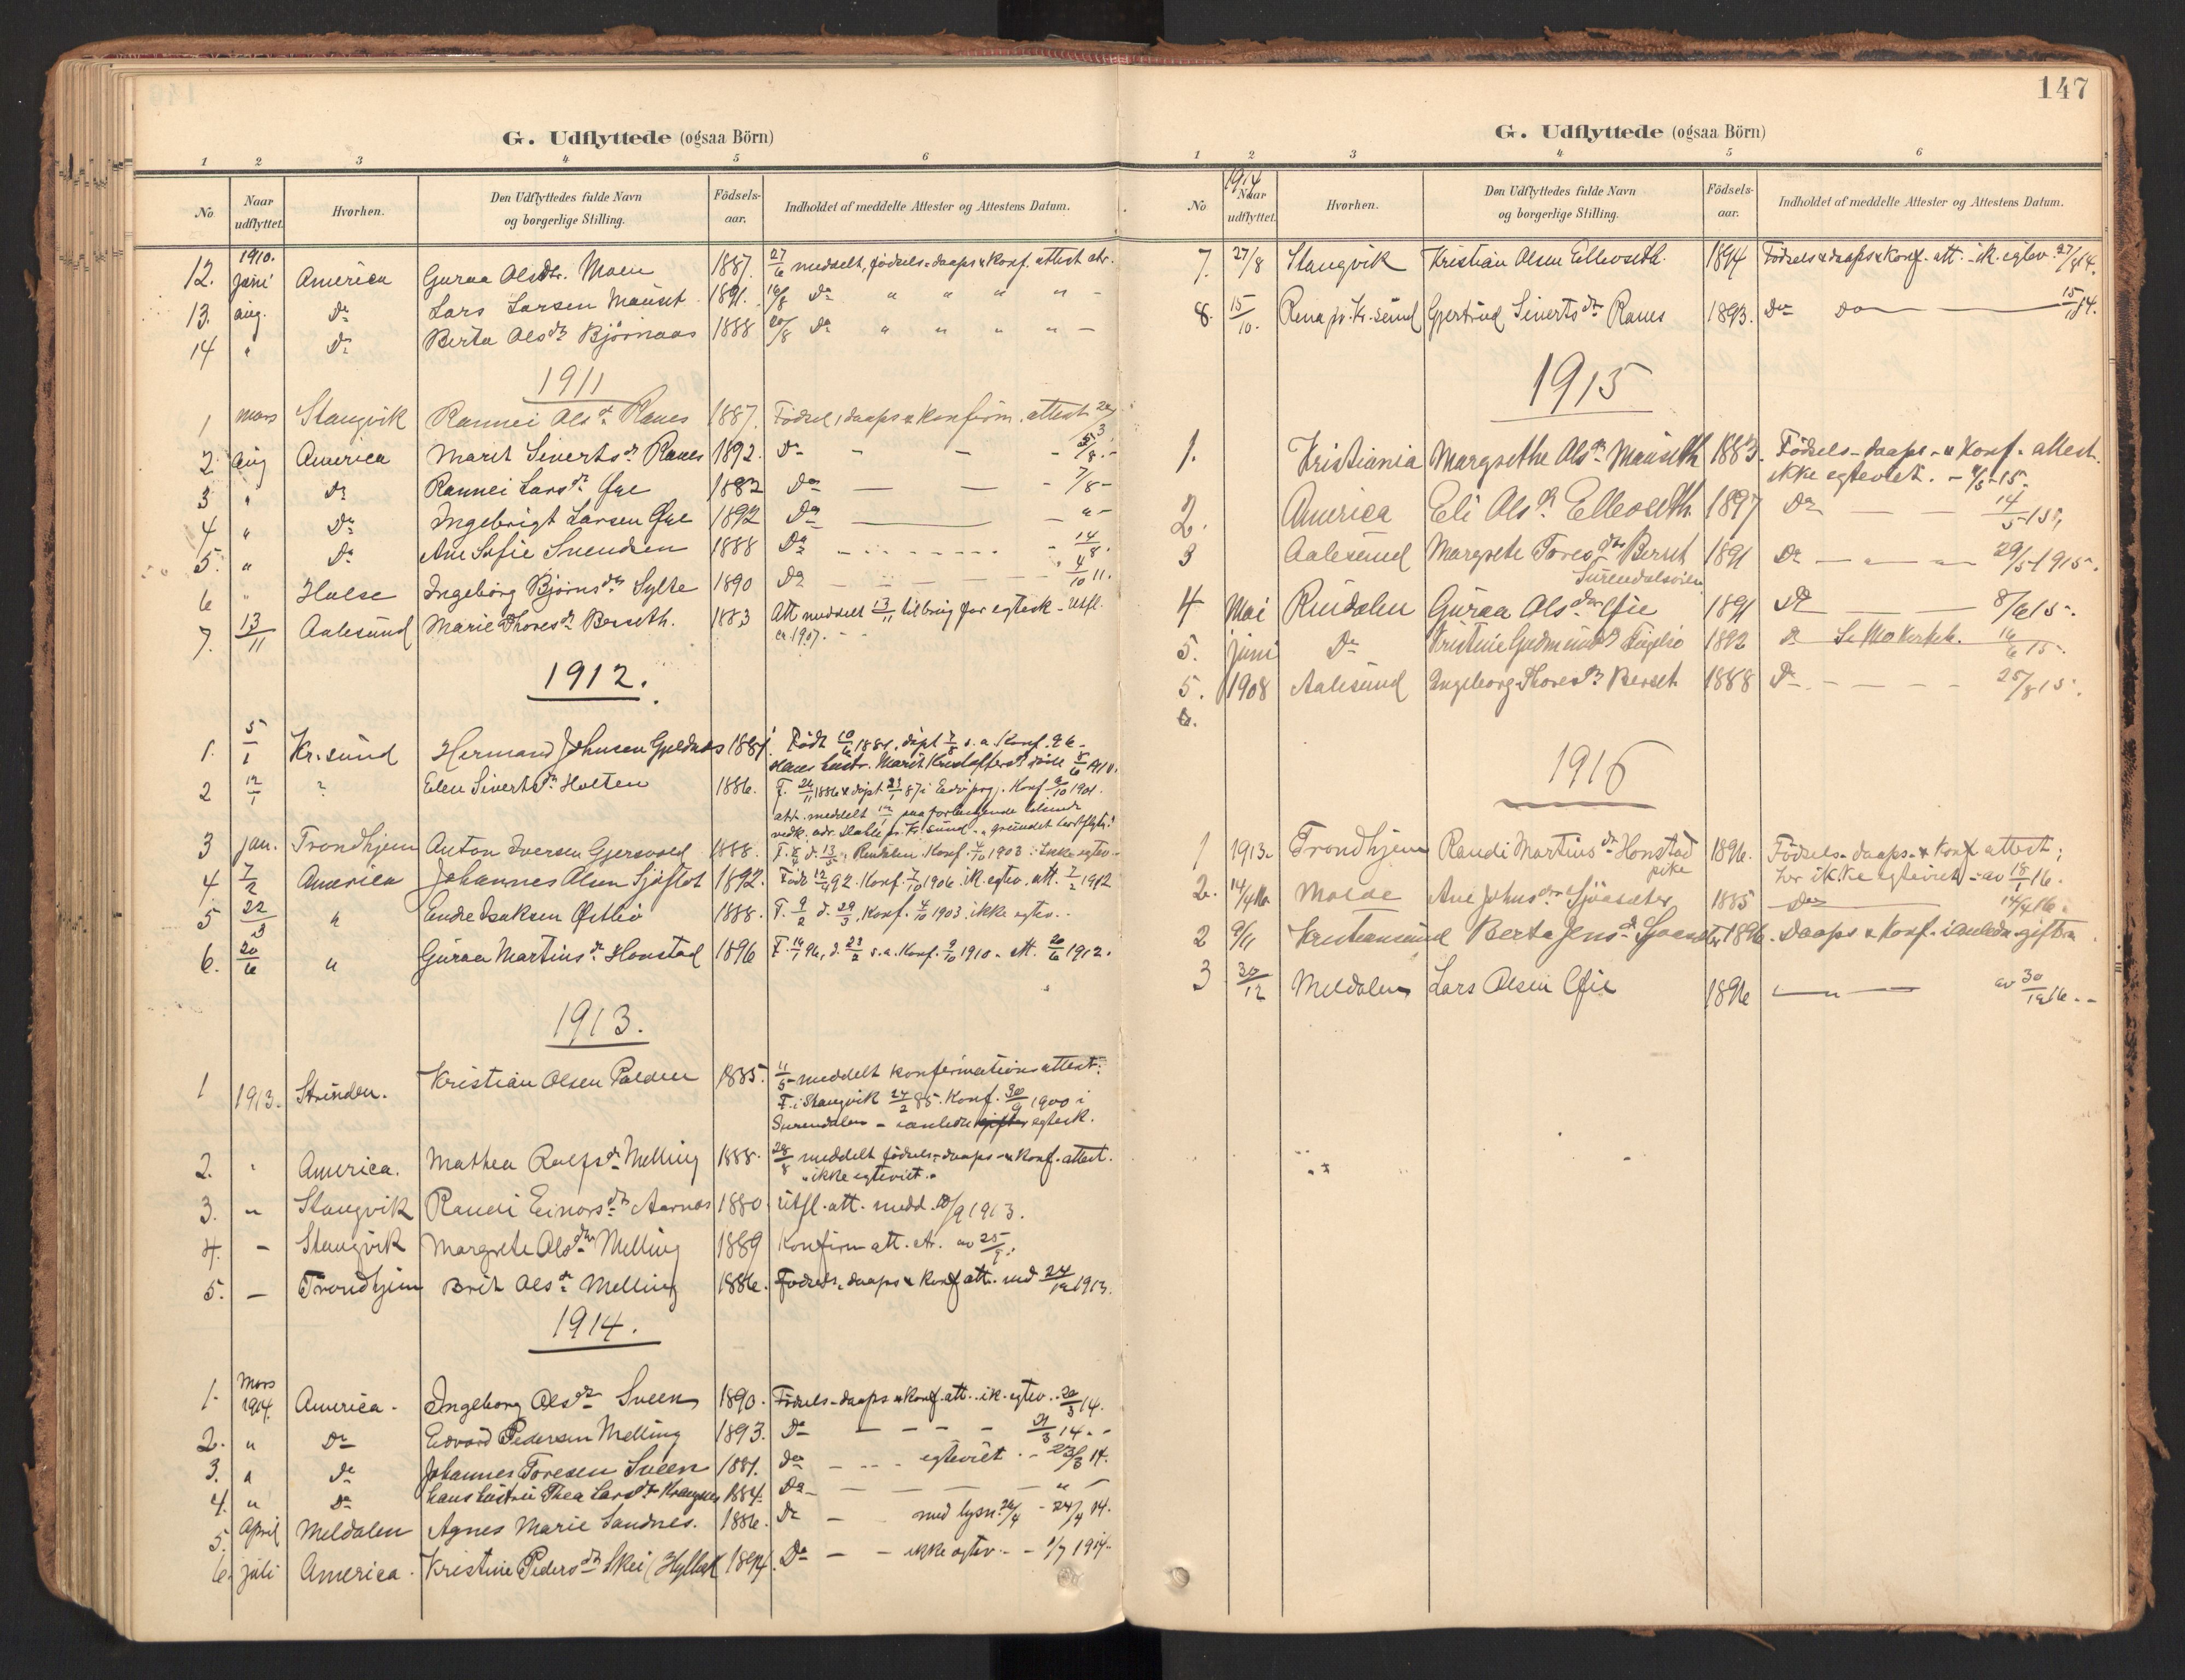 G. Udflyttede (ogsaa Börn)
1 2 3 4 5 6
No Naar udflyttet. Hvorhen. Den Udflyttedes fulde Navn og borgerlige Stilling. Födsels-aar. Indholdet af meddelte Attester og Attestens Datum.
1910.
12. juni America Guraa Olsdtr. Moen 1887. 27/6 meddelt, födsels-daaps & konf. attest
13. aug. Do Lars Larsen Mauset 1891. 16/8 Do " " " " -
14 " Do Berta Olsdtr Björnaas 1888 20/8 Do " " " " -
1911
1 mars Stangvik Rannei Olsdr Ranes 1887. Födsel, daaps & Konfirm. attest
2 Aug America Marit Sivertsdr Ranes 1892. Do - - - 5/8.-
3 " Do Rannei Larsdr Øye 1882 Do — — - 7/8-
4 " Do Ingebrigt Larsen Øye 1892 Do — — "-
5. " Do Ane Sofie Svendsen 1888 Do - - - 14/8.
6 " Halse Ingeborg Björnsdtr Sylte 1890 Do - - - 4/10 11.
7. 13/11 Aalesund Marie Thoresdr Berseth. 1883 Att meddelt 13/11 til brug for egtesk - Utfl.
er 1907. - -
1912.
1. 5/1 Kr.sund Hermand Johnsen Gjeldnes 1881. Födt 10/6 1881, döpt 7/8 s.a. Konf. 96-
2 12/1 Elen Sivertsdr Holten 1886. F. 24/11 1886 & döpt 23/1 87 i Konf 6/10 1901.
attr. meddelt 12/1 paa forlangende
3 jan. Trondhjem Anton Iversen Gjersvold 1888. F. 8/4 d. 13/5 i Rindalen Konf. 4/10 1903. Ikke egtev-
4 7/2 America Johannes Olsen Sjöflot 1892. Födt 12/4 92. Konf. 7/10 1906. ik. egtev. att. 7/2 1912
5 22/3 " Endre Isaksen Østbö 1888. F. 9/2 d. 29/3, Konf. 4/10 1903. ikke egtev..
6. 20/6 " Guraa Martinusdr Honstad 1896 F. 14/1 96, d. 23/2 s.a. Konf. 9/10 1910. att. 20/6 1912.
1913.
1 1913. Strinden. Kristian Olsen Polden 1885. 11/5 meddelt konfirmations attest:
F. i Stangvik 24/2 85. Konf. 30/9 1900 i
Surendalen - i anledn egtesk.
2. " America. Mathea Rolfsdr Melling 1888. 28/8 meddelt födsels-daaps- & Konf. attest.
"ikke egteviet."
3. " Stangvik Randi Einarsdtr Aarnes 1880. Utfl. att. medd. 10/9 1913.
4. - Stangvik Margrete Olsdtr Melling 1889 Konfirm att. av 25/9.
5. - Trondhjem Brit Olsdr Melling 1886. Fødsels-daaps & Konf att. 24/12 1913.
1914.
Mars
1. 1914. America. Ingeborg Olsdr Sveen 1890. Födsels-daaps & Konf. att. ik. egtev. 20/3 14.
2. " Do Edvard Pedersen Melling 1893. Do - - - - 21/3 14.-
3. " Do Johannes Toresen Sveen 1881. Do - - - egteviet - 23/3 14.
4. " Do hans hustru Thea Larsdtr 1884. Do — — — " -
5. April Meldalen Agnes Marie Sandnes. 1886. Do - med lysn. 24/4 - 24/4 14.
6. juli America. Kristine Pedersdtr Skei (Hylbak 1894. Do - - ikke egtev. - 1/7 1914.
147
G. Udflyttede (ogsaa Börn)
1 2 3 4 5 6
1914
No Naar udflyttet. Hvorhen. Den Udflyttedes fulde Navn og borgerlige Stilling. Födsels-aar. Indholdet af meddelte Attester og Attestens Datum.
7. 27/8 Stangvik Kristian Olsen Ellevseth 1894 Födsels & daaps & Konf. att. ik. egtev. 27/8 14.
8. 15/10. Rena pr. Kr.sund Gjertrud Sivertsdtr Ranes 1893. Do Do — 15/10 14.
1915
1. Kristiania Margrethe Olsdr Mauseth 1883. Födsels-daaps- & Konf. attest.
ikke egteviet.
2. America Eli Olsdr Ellevseth. 1897 Do — — 14/5 15.
3 Aalesund Margrete Toresdtr Berset 1891 Do — " — 29/5 1915.
Surendalsöien
4 Mai Rindalen Guraa Olsdtr Øie 1891 Do — 8/6 15.
5. juni Do Kristine Gudmundsdr 1892 Do 16/6 15.
5. 1908 Aalesund Ingeborg Thoresdtr Berset 1888 Do - - - 25/8 15.
6.
1916
1 1913. Trondhjem Randi Martinusdr Honstad 1896. Födsels-daaps- & Konf attest;
pike her ikke egteviet - av 18/1 16.
2. 14/4 16. Molde Ane Johnsdtr Sjöasæter 1885 Do 14/4 16.
2 9/11 Kristiansund Berta Jensdr 1896. Daaps & Konf. i anledn. giftm
3 30/12 Meldalen Lars Olsen Øie 1896 — " — av 30/12 16.-